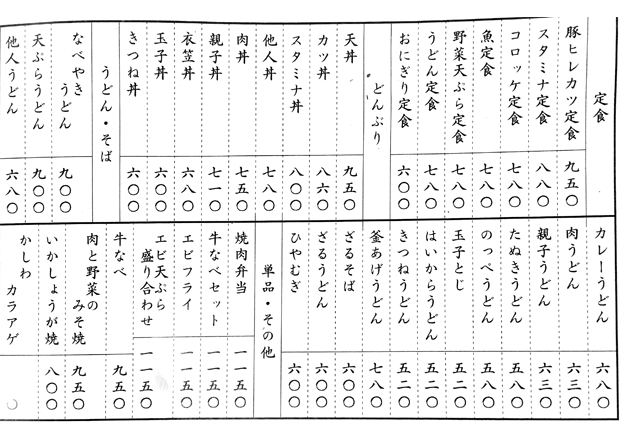 定食
豚ヒレカツ定食 九五〇
スタミナ定食 八八〇
コロッケ定食 七八〇
魚定食 七八〇
野菜天ぷら定食 七八〇
うどん定食 七八〇
おにぎり定食 六〇〇
どんぶり
天丼 九五〇
カツ丼 八六〇
スタミナ丼 八〇〇
他人丼 七八〇
肉丼 七五〇
親子丼 七一〇
衣笠丼 六八〇
玉子丼 六〇〇
きつね丼 六〇〇
うどん・そば
なべやきうどん 九〇〇
天ぷらうどん 九〇〇
他人うどん 六八〇
カレーうどん 六八〇
肉うどん 六三〇
親子うどん 六三〇
たぬきうどん 五八〇
のっぺうどん 五八〇
玉子とじ 五二〇
はいからうどん 五二〇
きつねうどん 五二〇
釜あげうどん 七八〇
ざるそば 六〇〇
ざるうどん 六〇〇
ひやむぎ 六〇〇
単品・その他
焼肉弁当 一一五〇
牛なべセット 一一五〇
エビフライ 一一五〇
エビ天ぷら
盛り合わせ 一一五〇
牛なべ 九五〇
肉と野菜の
みそ焼 九五〇
いかしょうが焼 八〇〇
かしわ カラアゲ